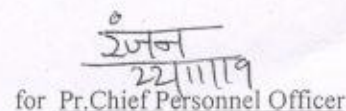 रंजन
22/11/19
for Pr.Chief Personnel Officer